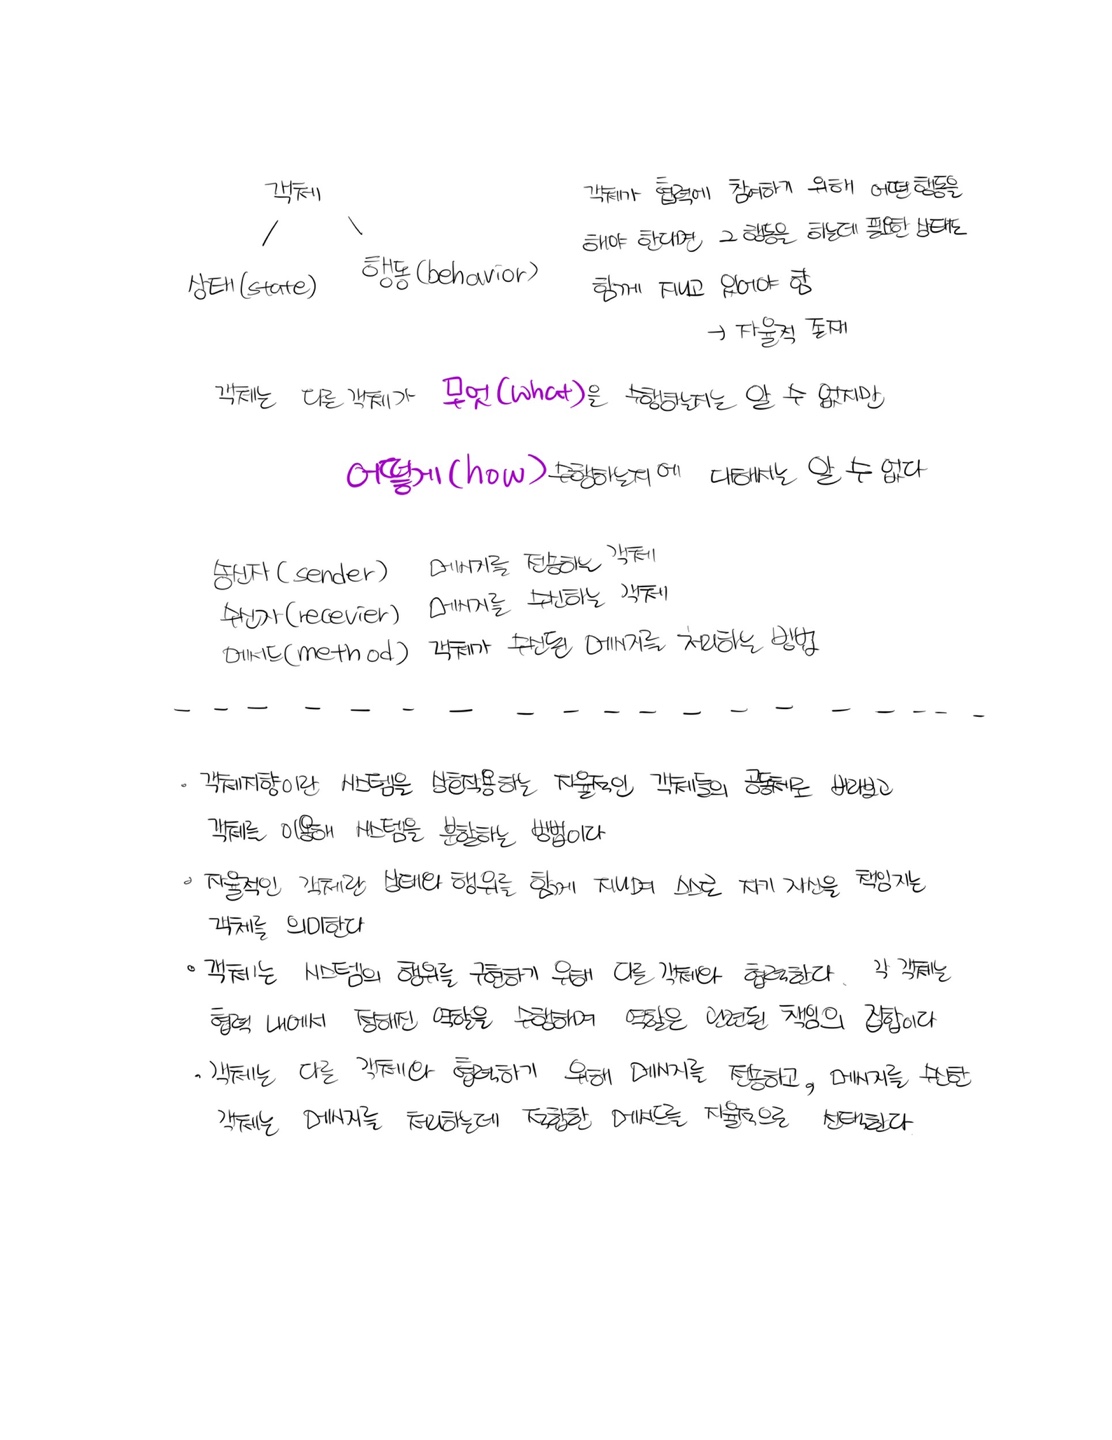 객체
상태(state)
행동(behavior)
객체가 협력에 참여하기 위해 어떤 행동을
해야 한다면 그 행동을 하는데 필요한 상태도
함께 지니고 있어야 함
→ 자율적 존재
객체는 다른 객체가 무엇(what)을 수행하는지는 알 수 없지만
어떻게(how) 수행하는지에 대해서는 알 수 없다
송신자(sender) 메시지를 전송하는 객체
수신자(recevier) 메시지를 수신하는 객체
메서드(method) 객체가 수신된 메시지를 처리하는 방법
• 객체지향이란 시스템을 상호작용하는 자율적인 객체들의 공동체로 바라보고
객체를 이용해 시스템을 분할하는 방법이다
• 자율적인 객체란 상태와 행위를 함께 지니며 스스로 자기 자신을 책임지는
객체를 의미한다
• 객체는 시스템의 행위를 구현하기 위해 다른 객체와 협력한다. 각 객체는
협력 내에서 정해진 역할을 수행하며 역할은 관련된 책임의 집합이다
• 객체는 다른 객체와 협력하기 위해 메시지를 전송하고, 메시지를 수신한
객체는 메시지를 처리하는데 적합한 메서드를 자율적으로 선택한다